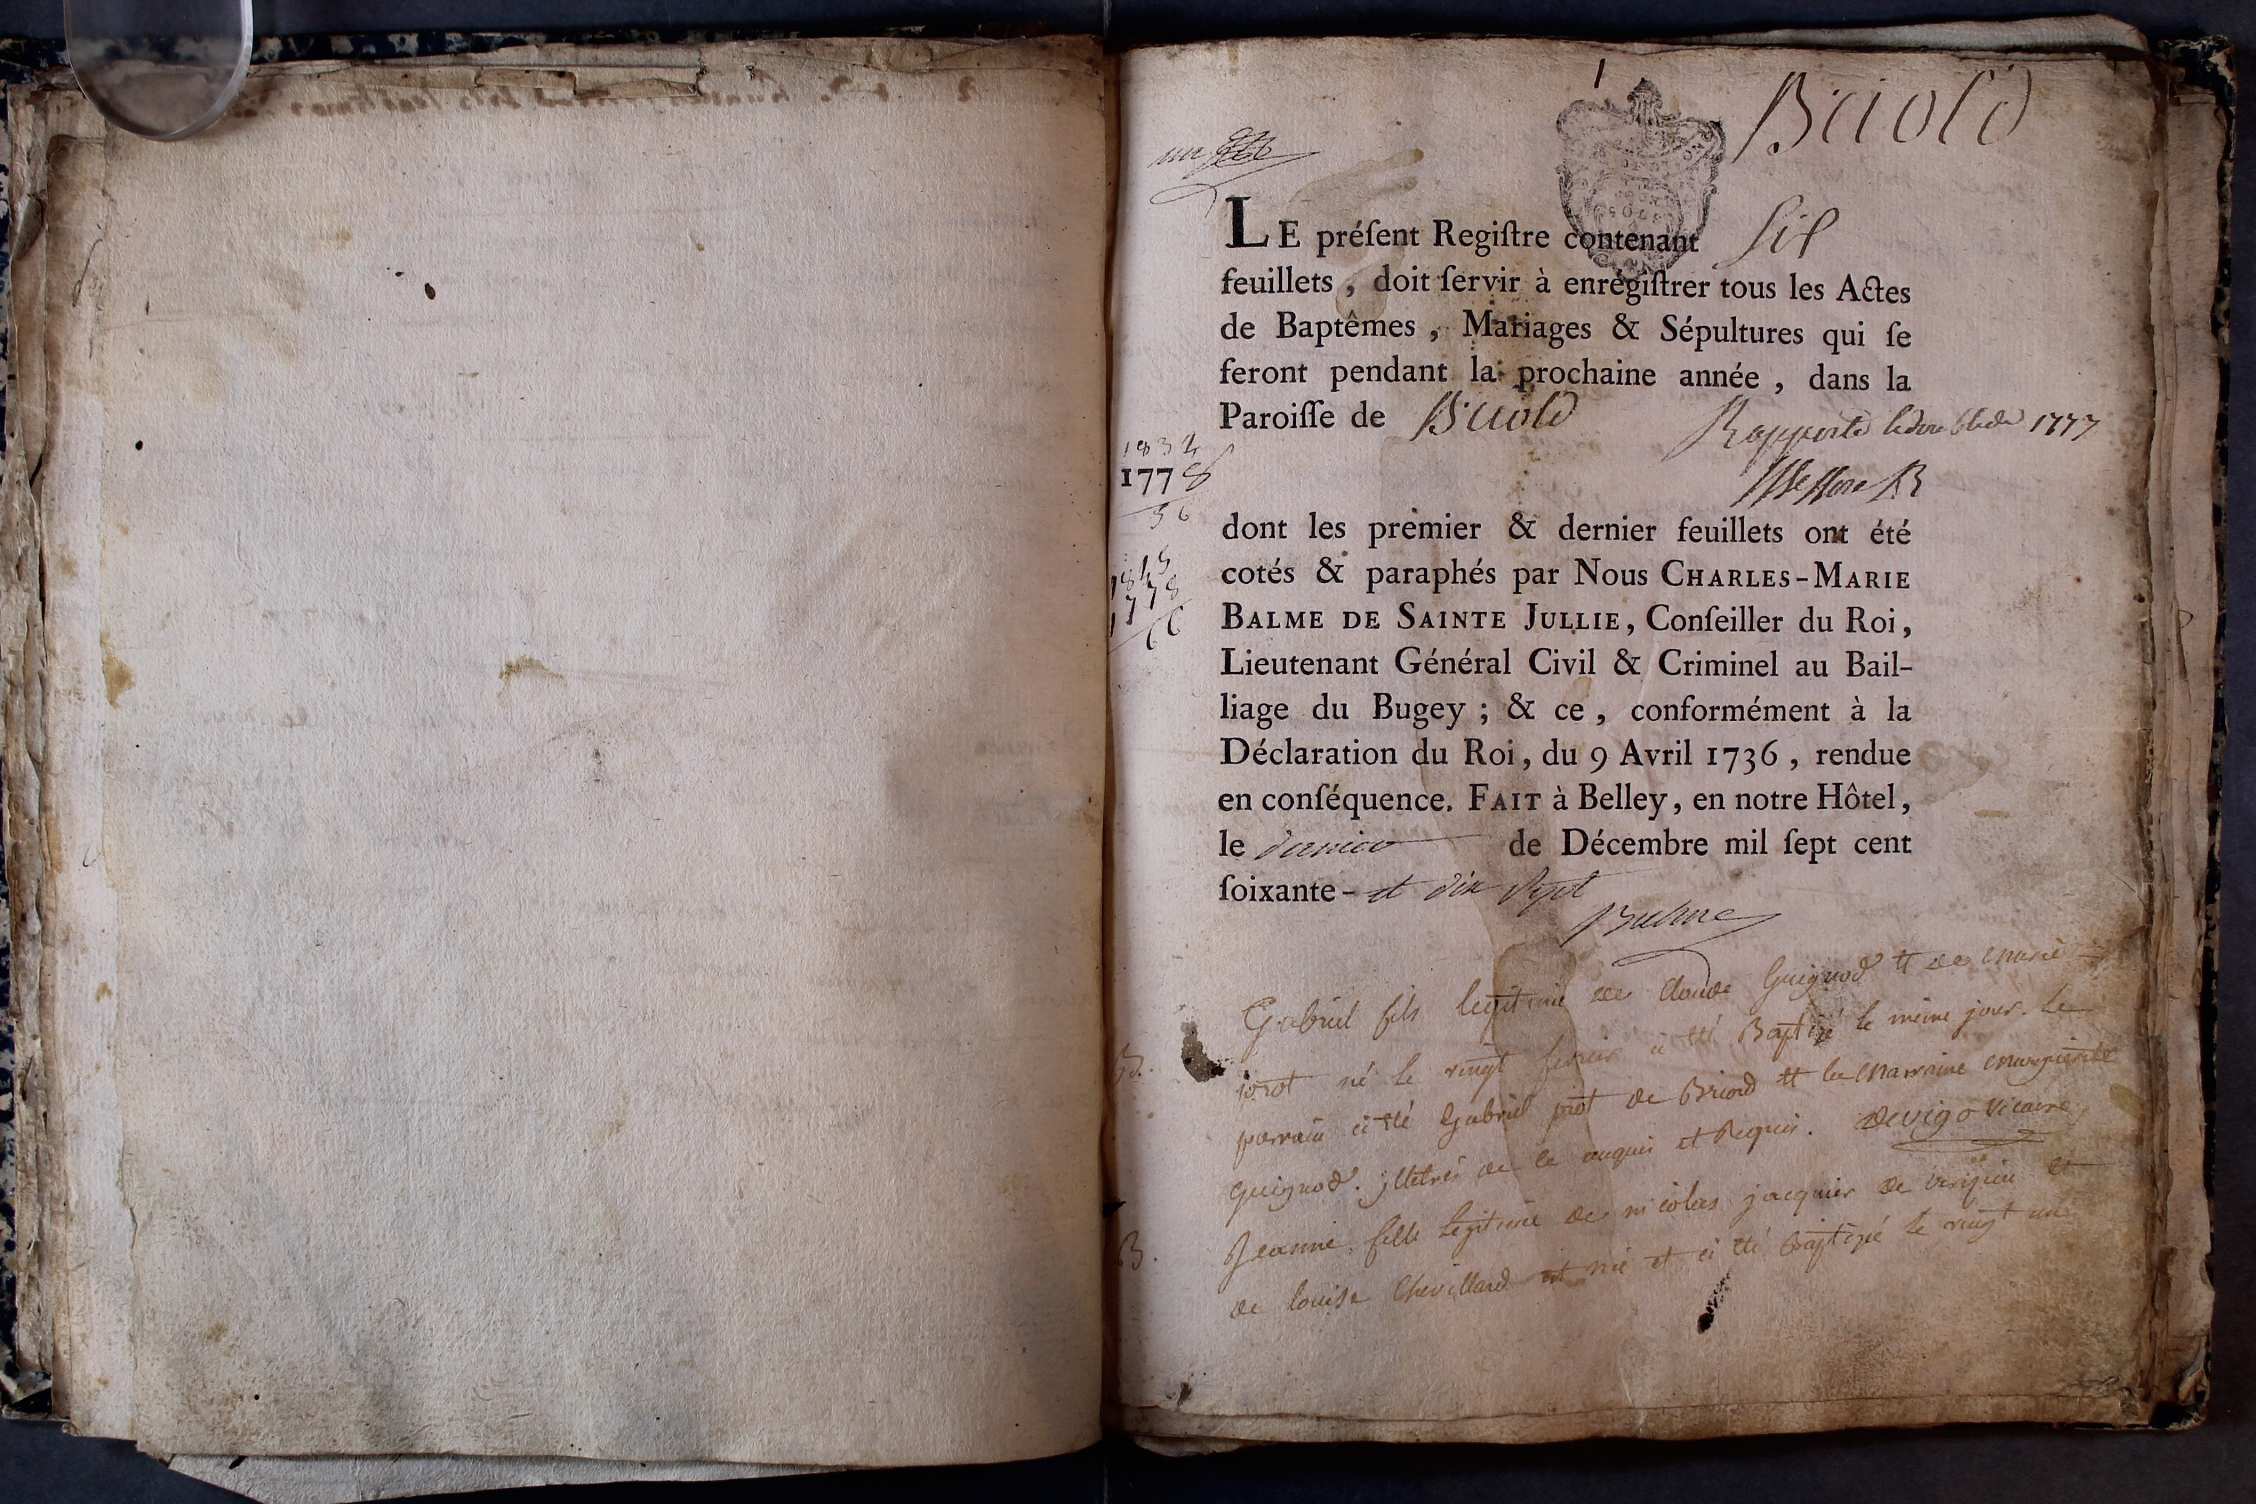 1
Briold
un
LE préſent Regiſtre contenant Six
feuillets, doit ſervir à enrégiſtrer tous les Actes
de Baptêmes, Mariages & Sépultures qui ſe
feront pendant la prochaine année, dans la
Paroiſſe de Briold
Rapporté le double de 1777
1834
1778
56
dont les premier & dernier feuillets ont été
cotés & paraphés par Nous CHARLES-MARIE
BALME DE SAINTE JULLIE, Conſeiller du Roi,
Lieutenant Général Civil & Criminel au Bail-
liage du Bugey; & ce, conformément à la
Déclaration du Roi, du 9 Avril 1736, rendue
en conſéquence. FAIT à Belley, en notre Hôtel,
le dernier de Décembre mil ſept cent
ſoixante- et dix Sept
Balme
1848
1778
Gabriel fils legitime de Claude Guignod et de marie
piot né le vingt fevrier a été Baptizé le même jour. Le
B.
parrain a été Gabriel piot de Briord et la marraine marguerite
guignod. illetrés de ce enquis et Requis. Devigo vicaire
Jeanne fille legitime de nicolas jacquier de verizieu et
B.
de louise Chevillard est née et a été Baptizé le vingt un